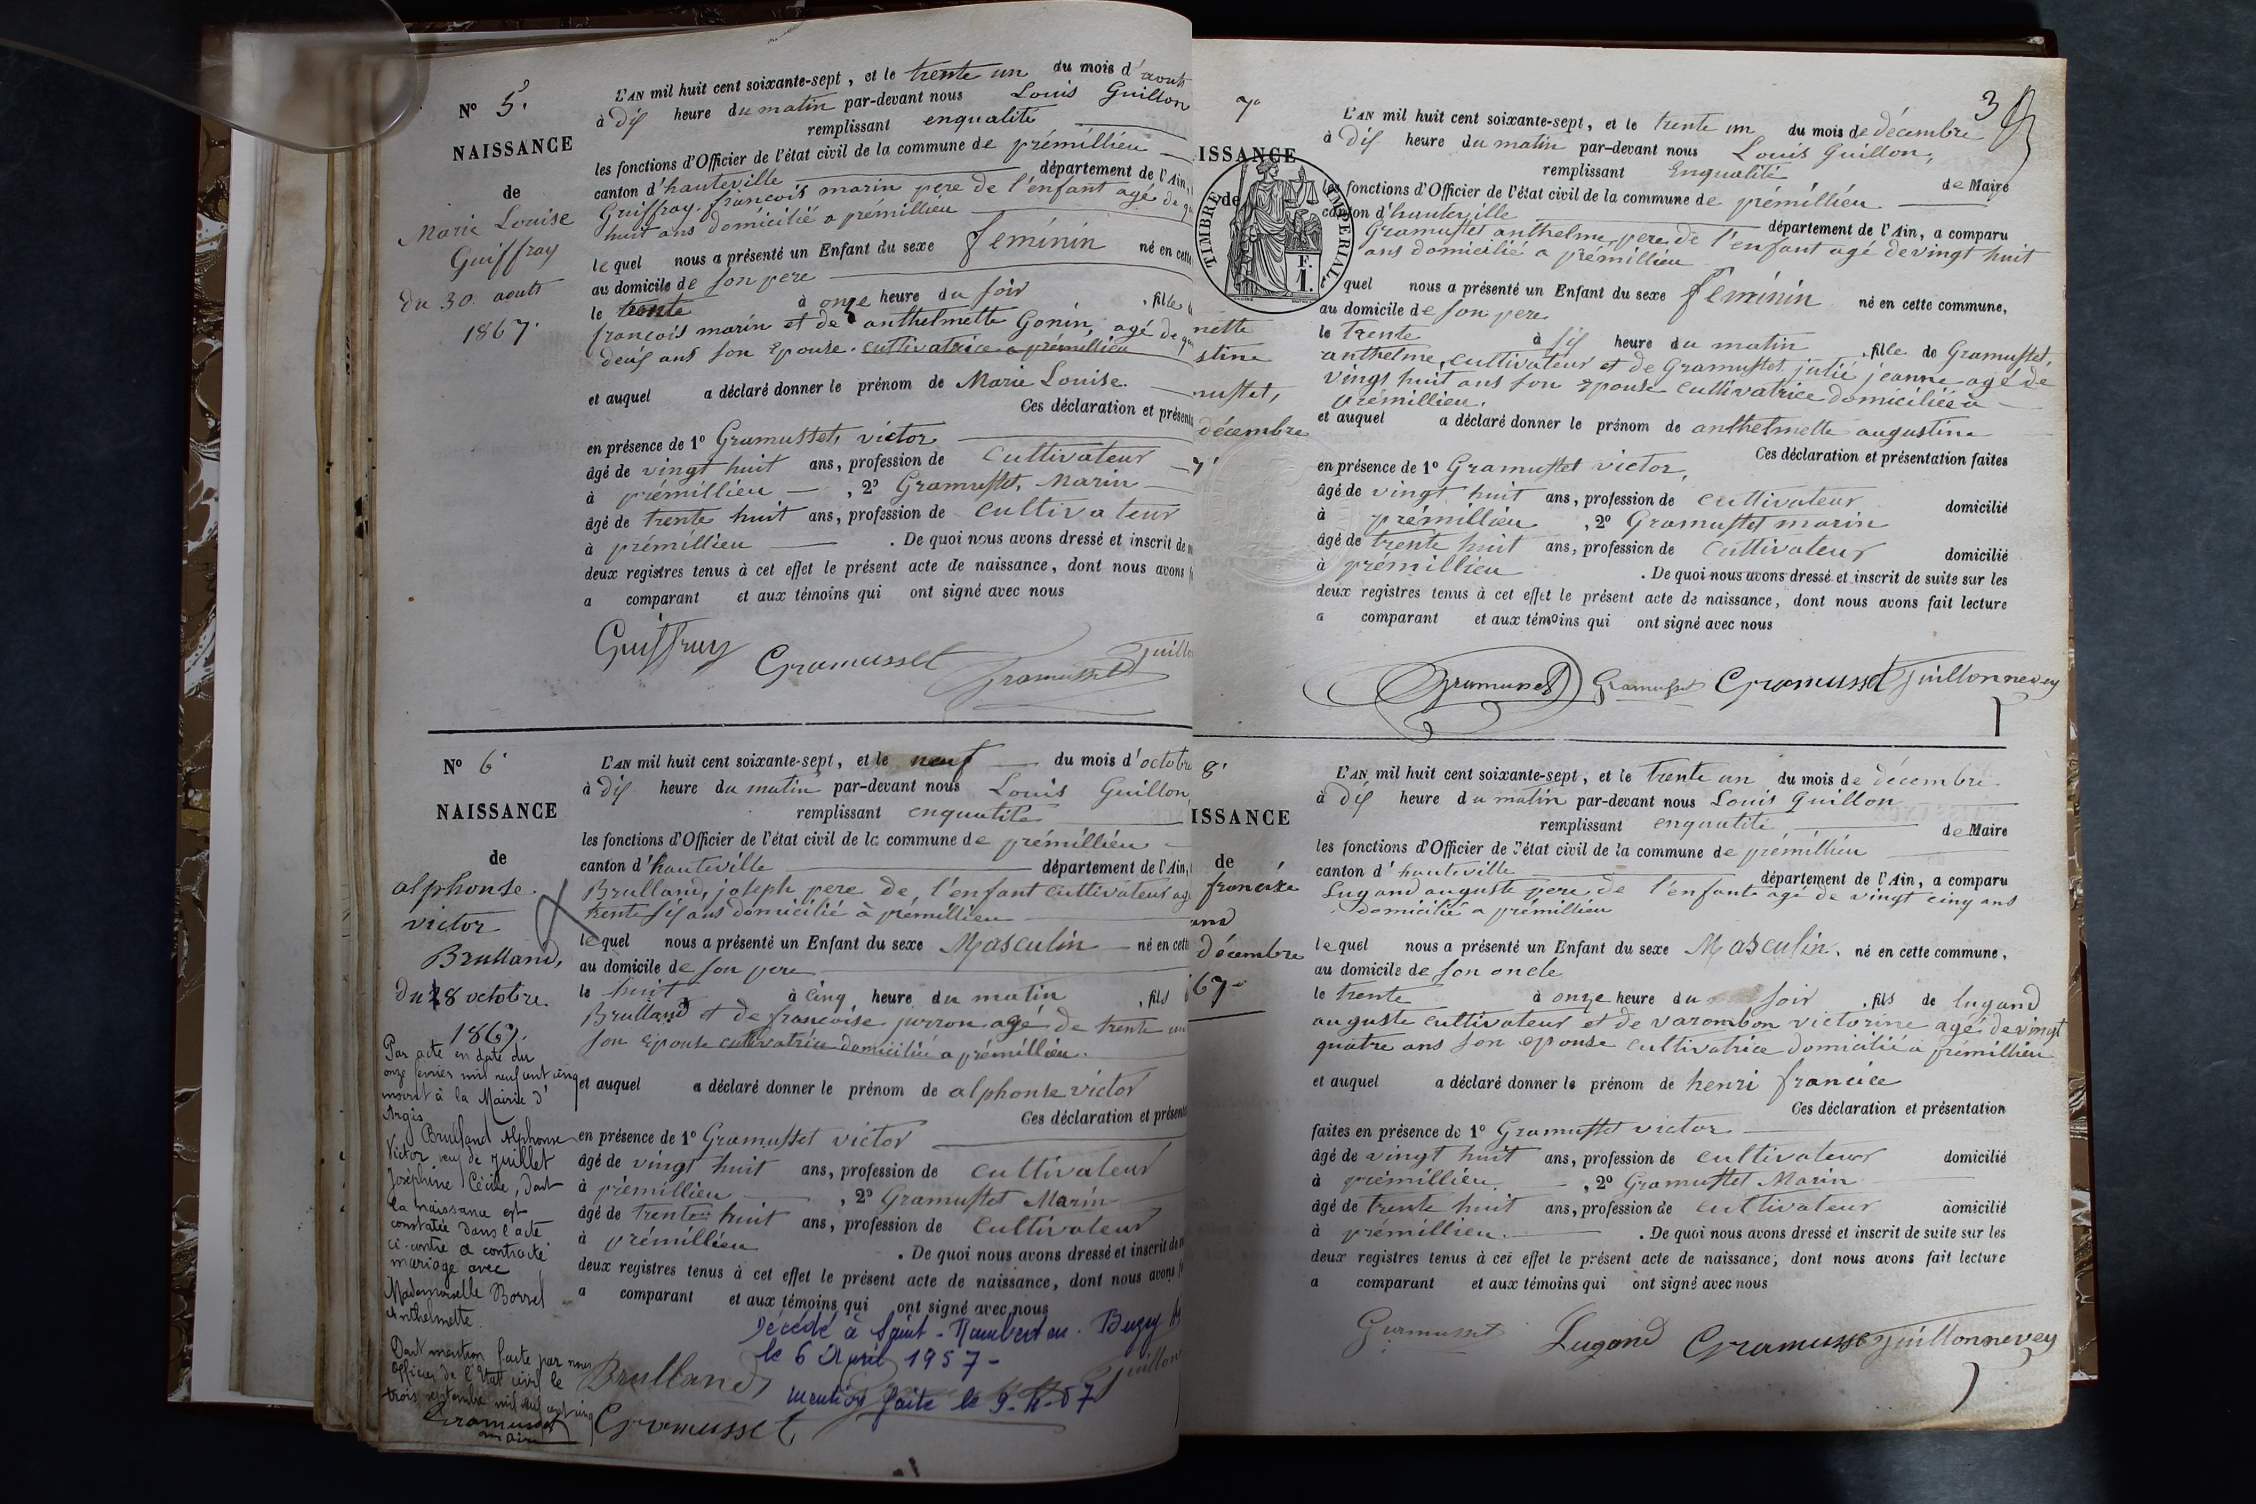 N° 5.
NAISSANCE
de
Marie Louise
Guiffray
du 30 aouts
1867.
L'AN mil huit cent soixante-sept, et le trente un du mois d'aouts
à dix heure du matin par-devant nous Louis Guillon
remplissant enqualité
les fonctions d'Officier de l'état civil de la commune de prémillieu
canton d'hauteville département de l'Ain,
Guiffray françois marin pere de l'enfant agé de
huit ans domicilié a prémillieu
lequel nous a présenté un Enfant du sexe feminin né en cette
au domicile de son pere
le trente à onze heure du soir , fille
françois marin et de anthelmette Gonin, agé de
deux ans son Epouse. cultivatrice a prémillieu
et auquel a déclaré donner le prénom de Marie Louise.
Ces déclaration et présent
en présence de 1° Gramusset, victor
âgé de vingt huit ans, profession de cultivateur
à prémillieu , 2° Gramusset, Marin
âgé de trente huit ans, profession de cultivateur
à prémillieu . De quoi nous avons dressé et inscrit de
deux registres tenus à cet effet le présent acte de naissance, dont nous avons
a comparant et aux témoins qui ont signé avec nous
Guiffray Gramusset Gramusset Guillon
N° 6.
NAISSANCE
de
alphonse.
victor
Brulland,
du 8 octobre.
1867.
Par acte en date du
onze février mil neuf cent cinq
inscrit à la Mairie d'
Argis
Brulland Alphonse
Victor veuf de Juillet
Joséphine Cécile, dont
la naissance est
constatée dans l'acte
ci-contre a contracté
mariage avec
Mademoiselle Borrel
Anthelmette.
Dont mention faite par nous
officier de l'Etat civil le
trois septembre mil neuf cent cinq
Gramusset
maire
L'AN mil huit cent soixante-sept, et le neuf du mois d'octobre
à dix heure du matin par-devant nous Louis Guillon
remplissant enqualité
les fonctions d'Officier de l'état civil de la commune de prémillieu
canton d'hauteville département de l'Ain,
Brulland, joseph pere de l'enfant cultivateur agé
trente six ans domicilié à prémillieu
lequel nous a présenté un Enfant du sexe Masculin né en cette
au domicile de son pere
le huit à cinq heure du matin , fils
Brulland et de françoise perron agé de trente un
son Epouse cultivatrice domicilié a prémillieu.
et auquel a déclaré donner le prénom de alphonse victor
Ces déclaration et présent
en présence de 1° Gramusset victor
âgé de vingt huit ans, profession de cultivateur
à prémillieu , 2° Gramusset Marin
âgé de trente huit ans, profession de cultivateur
à prémillieu . De quoi nous avons dressé et inscrit de
deux registres tenus à cet effet le présent acte de naissance, dont nous avons
a comparant et aux témoins qui ont signé avec nous
Décédé à Saint-Rambert en Bugey
le 6 Avril 1957-
mention faite le 9-4-57
Brulland Guillon
Gramusset
7°
ISSANCE
de
TIMBRE IMPERIAL
F.
1.
nette
stine
musset,
décembre
7.
3
L'AN mil huit cent soixante-sept, et le trente un du mois de décembre
à dix heure du matin par-devant nous Louis Guillon,
remplissant Enqualité de Maire
les fonctions d'Officier de l'état civil de la commune de prémillieu
canton d'hauteville département de l'Ain, a comparu
Gramusset anthelme pere de l'enfant agé de vingt huit
ans domicilié a prémillieu
quel nous a présenté un Enfant du sexe Feminin né en cette commune,
au domicile de son pere
le trente à six heure du matin , fille de Gramusset,
anthelme, cultivateur et de Gramusset julie jeanne agé de
vingt huit ans son Epouse cultivatrice domiciliée a
prémillieu.
et auquel a déclaré donner le prénom de anthelmette augustine
Ces déclaration et présentation faites
en présence de 1° Gramusset victor,
âgé de vingt huit ans, profession de cultivateur domicilié
à prémillieu , 2° Gramusset marin
âgé de trente huit ans, profession de cultivateur domicilié
à prémillieu . De quoi nous avons dressé et inscrit de suite sur les
deux registres tenus à cet effet le présent acte de naissance, dont nous avons fait lecture
a comparant et aux témoins qui ont signé avec nous
Gramusset Gramusset Gramusset Guillonnevey
8.
ISSANCE
de
décembre
67.
L'AN mil huit cent soixante-sept, et le trente un du mois de décembre
à dix heure du matin par-devant nous Louis Guillon
remplissant enqualité de Maire
les fonctions d'Officier de l'état civil de la commune de prémillieu
canton d'hauteville département de l'Ain, a comparu
Lugand auguste pere de l'enfant agé de vingt cinq ans
domicilié a prémillieu
lequel nous a présenté un Enfant du sexe Masculin, né en cette commune,
au domicile de son oncle
le trente à onze heure du soir , fils de lugand
auguste cultivateur et de varombon victorine agé de vingt
quatre ans son epouse cultivatrice domicilié a prémillieu
et auquel a déclaré donner le prénom de henri
Ces déclaration et présentation
faites en présence de 1° Gramusset victor
âgé de vingt huit ans, profession de cultivateur domicilié
à prémillieu , 2° Gramusset Marin
âgé de trente huit ans, profession de cultivateur domicilié
à prémillieu. . De quoi nous avons dressé et inscrit de suite sur les
deux registres tenus à cet effet le présent acte de naissance, dont nous avons fait lecture
a comparant et aux témoins qui ont signé avec nous
Gramusset Lugand Gramusset Guillonnevey